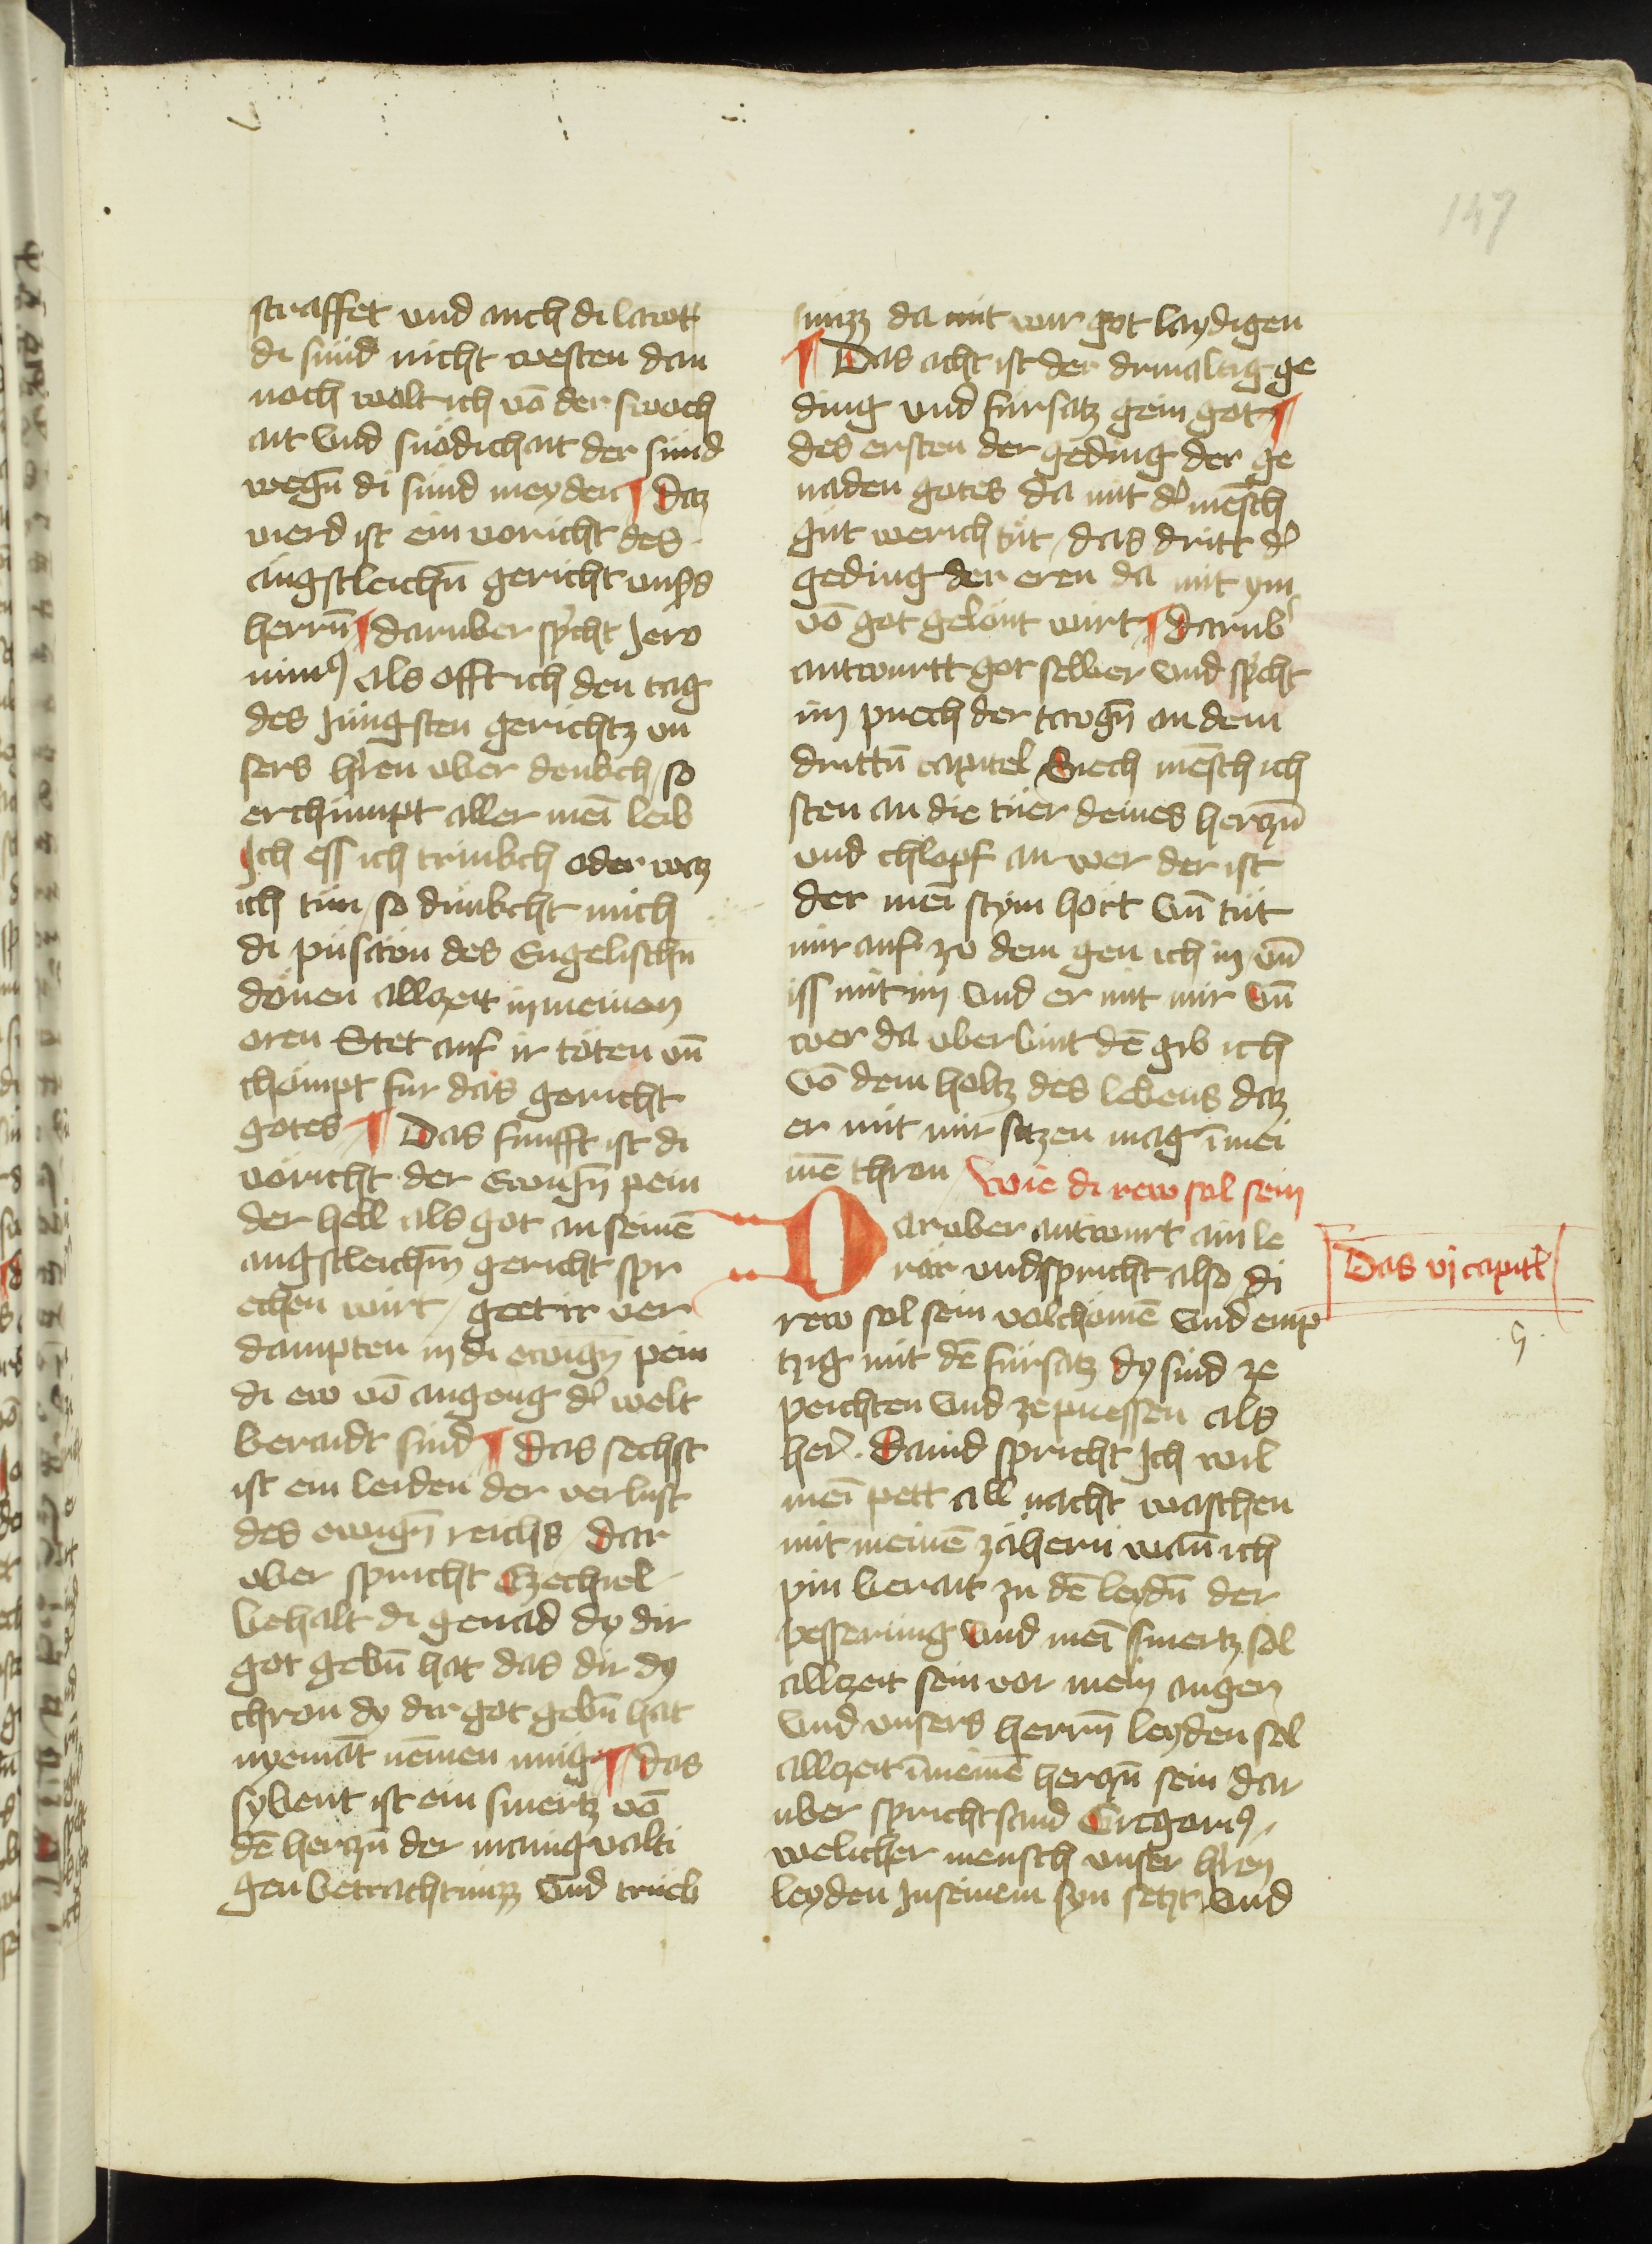 147
straffet und auch di lawt
di sünd nicht westen dan
noch wolt ich vō der swach
ait vnd snödichait der sünd
wegn̄ di sünd meyden ¶ Daz
vierd ist ein voricht des
angstleichn̄ gericht vnsers
herrn̄ ¶ daruber spͥcht Jero
nimꝰ als offt ich den tag
des Jüngsten gerichtz vn
sers hͥren über denkch / so
erchümpt aller meī leib
Ich ess ich trinkch oder waz
ich tün / so dunkcht mich
di pusaön des Engelischn̄
dönen allzeit in meinen
oren Stet auf ir töten vn̄
chömpt für das gericht
gotes ¶ Das funfft ist di
voricht der Ewign̄ pein
der hell als got an seinē
angstleichn̄ gericht spr
echen wirt / geet ir ver
dampten in di ewign̄ pein
di ew vō angeng dͬ welt
beraidt sind ¶ das sechst
ist ein leiden der verlust
des ewign̄ reichs / dar
vber spricht Ezechiel
behalt di genad dy dir
got gebn̄ hat das dir dy
chron dy dir got gebn̄ hat
nyemāt nēmen müg ¶ das
sybent ist ein smertz vō
dē herczn̄ der manigvalti
gen betrachtnüzz vnd trüeb
nüzz da mit wir got laydigen
¶ Das acht ist der drivaltig ge
ding und fürsatz gein got ¶
des ersten der geding der ge
naden gotes da mit dͬ mēsch
güt werich tüt / das dritt dͬ
geding der eren da mit ym
vō got gelönt wirt ¶ darübͬ
antwurtt got selber vnd spͥcht
im puech der tawgn̄ an dem
drittn̄ capitel Siech mēsch ich
sten an die tüer deines herczn̄
und chlopf an wer der ist
der meī stym hört vn̄ tüt
mir auf zo dem gen ich in vn̄
iss mit im vnd er mit mir vn̄
wer da überbint dē gib ich
vō dem holtz des lebens daz
er mit mir sitzen mag ī mei
nē thron / Wie di rew sol sein
Darüber antwurt ain le
rär und spricht also / di
rew sol sein volchömē vnd emp
tzig mit dē fürsatz dy sünd ze
peichten vnd ze puessen als
herͬ Dauid spricht Ich wil
meī pett all nacht waschen
mit meinē zähern wan̄ ich
pin berait zu dē leydn̄ der
pesserüng vnd meī smertz sol
allzeit sein vor mein augen
vnd unsers herrn̄ leyden sol
allzeit ī meinē herczn̄ sein dar
uber spricht sand Gregoriꝰ /
welicher mensch unser hͥren
leyden In seinem syn setzt vnd
Das vj capitl̄